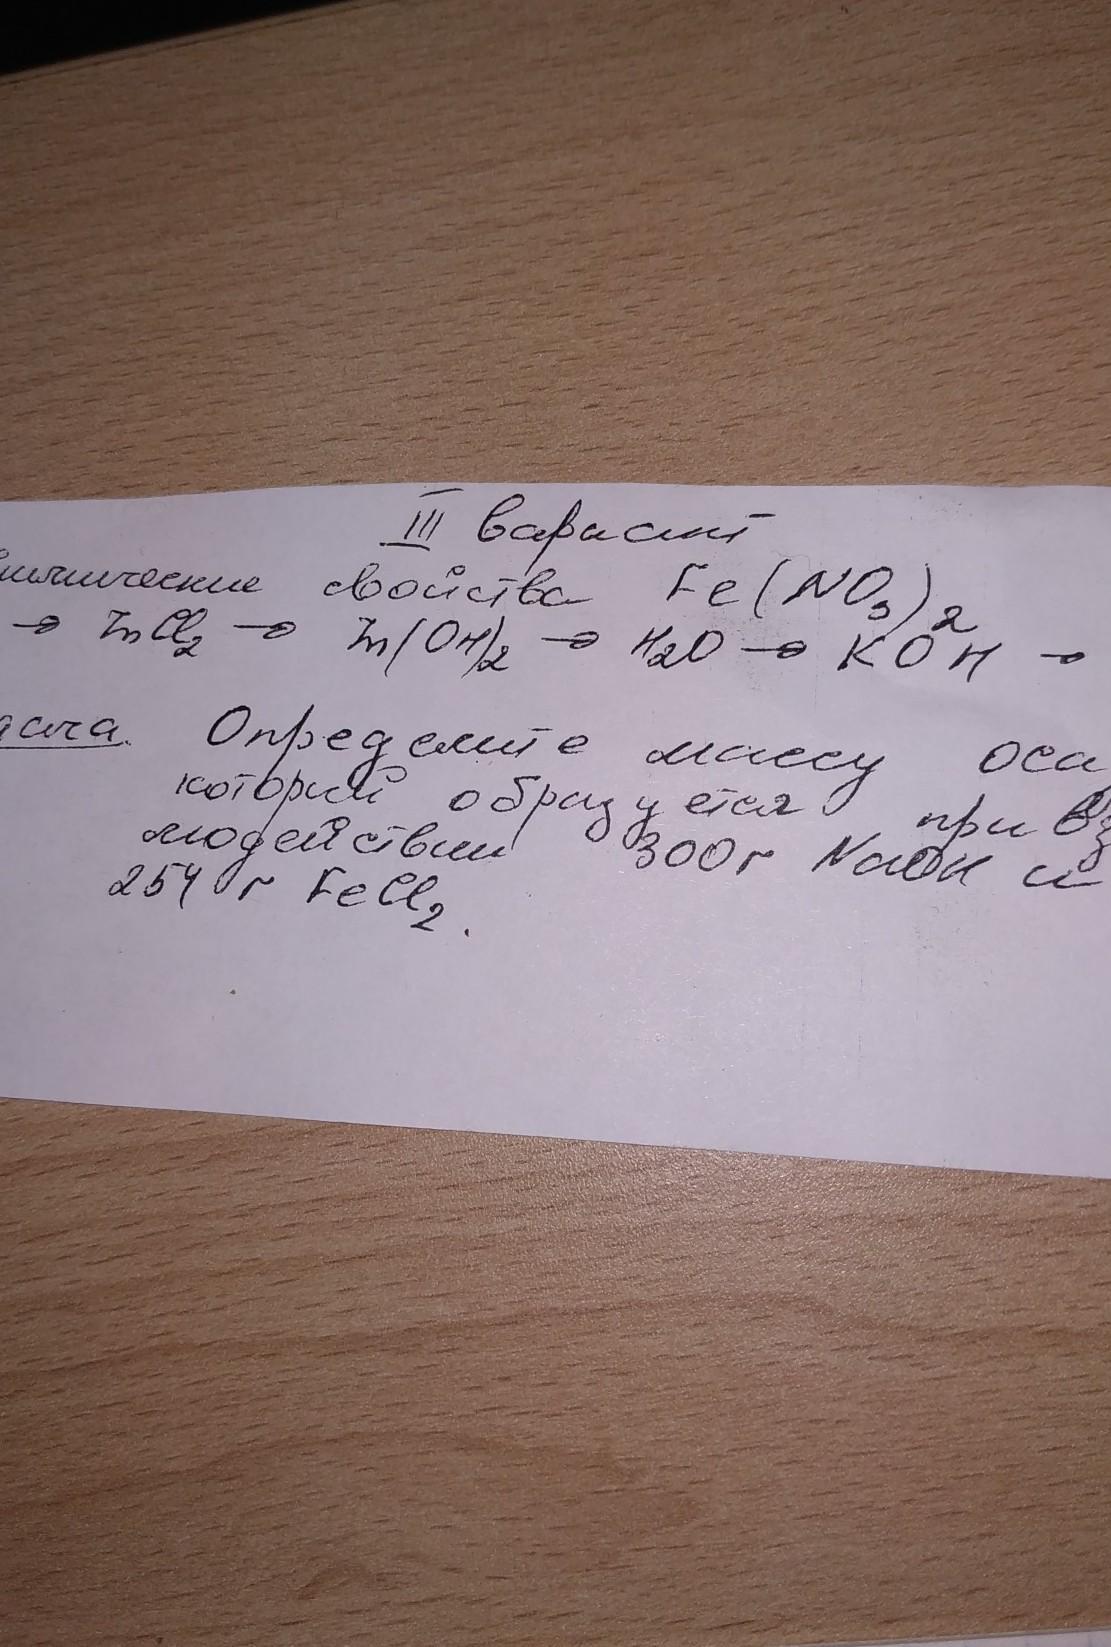 III вариант
химические свойства Fe(NO3)2
→ ZnCl2 → Zn(OH)2 → H2O → KOH →
дача. Определите массу оса
который образуется при вз
модействии 300г NaOH и
254 г FeCl2.